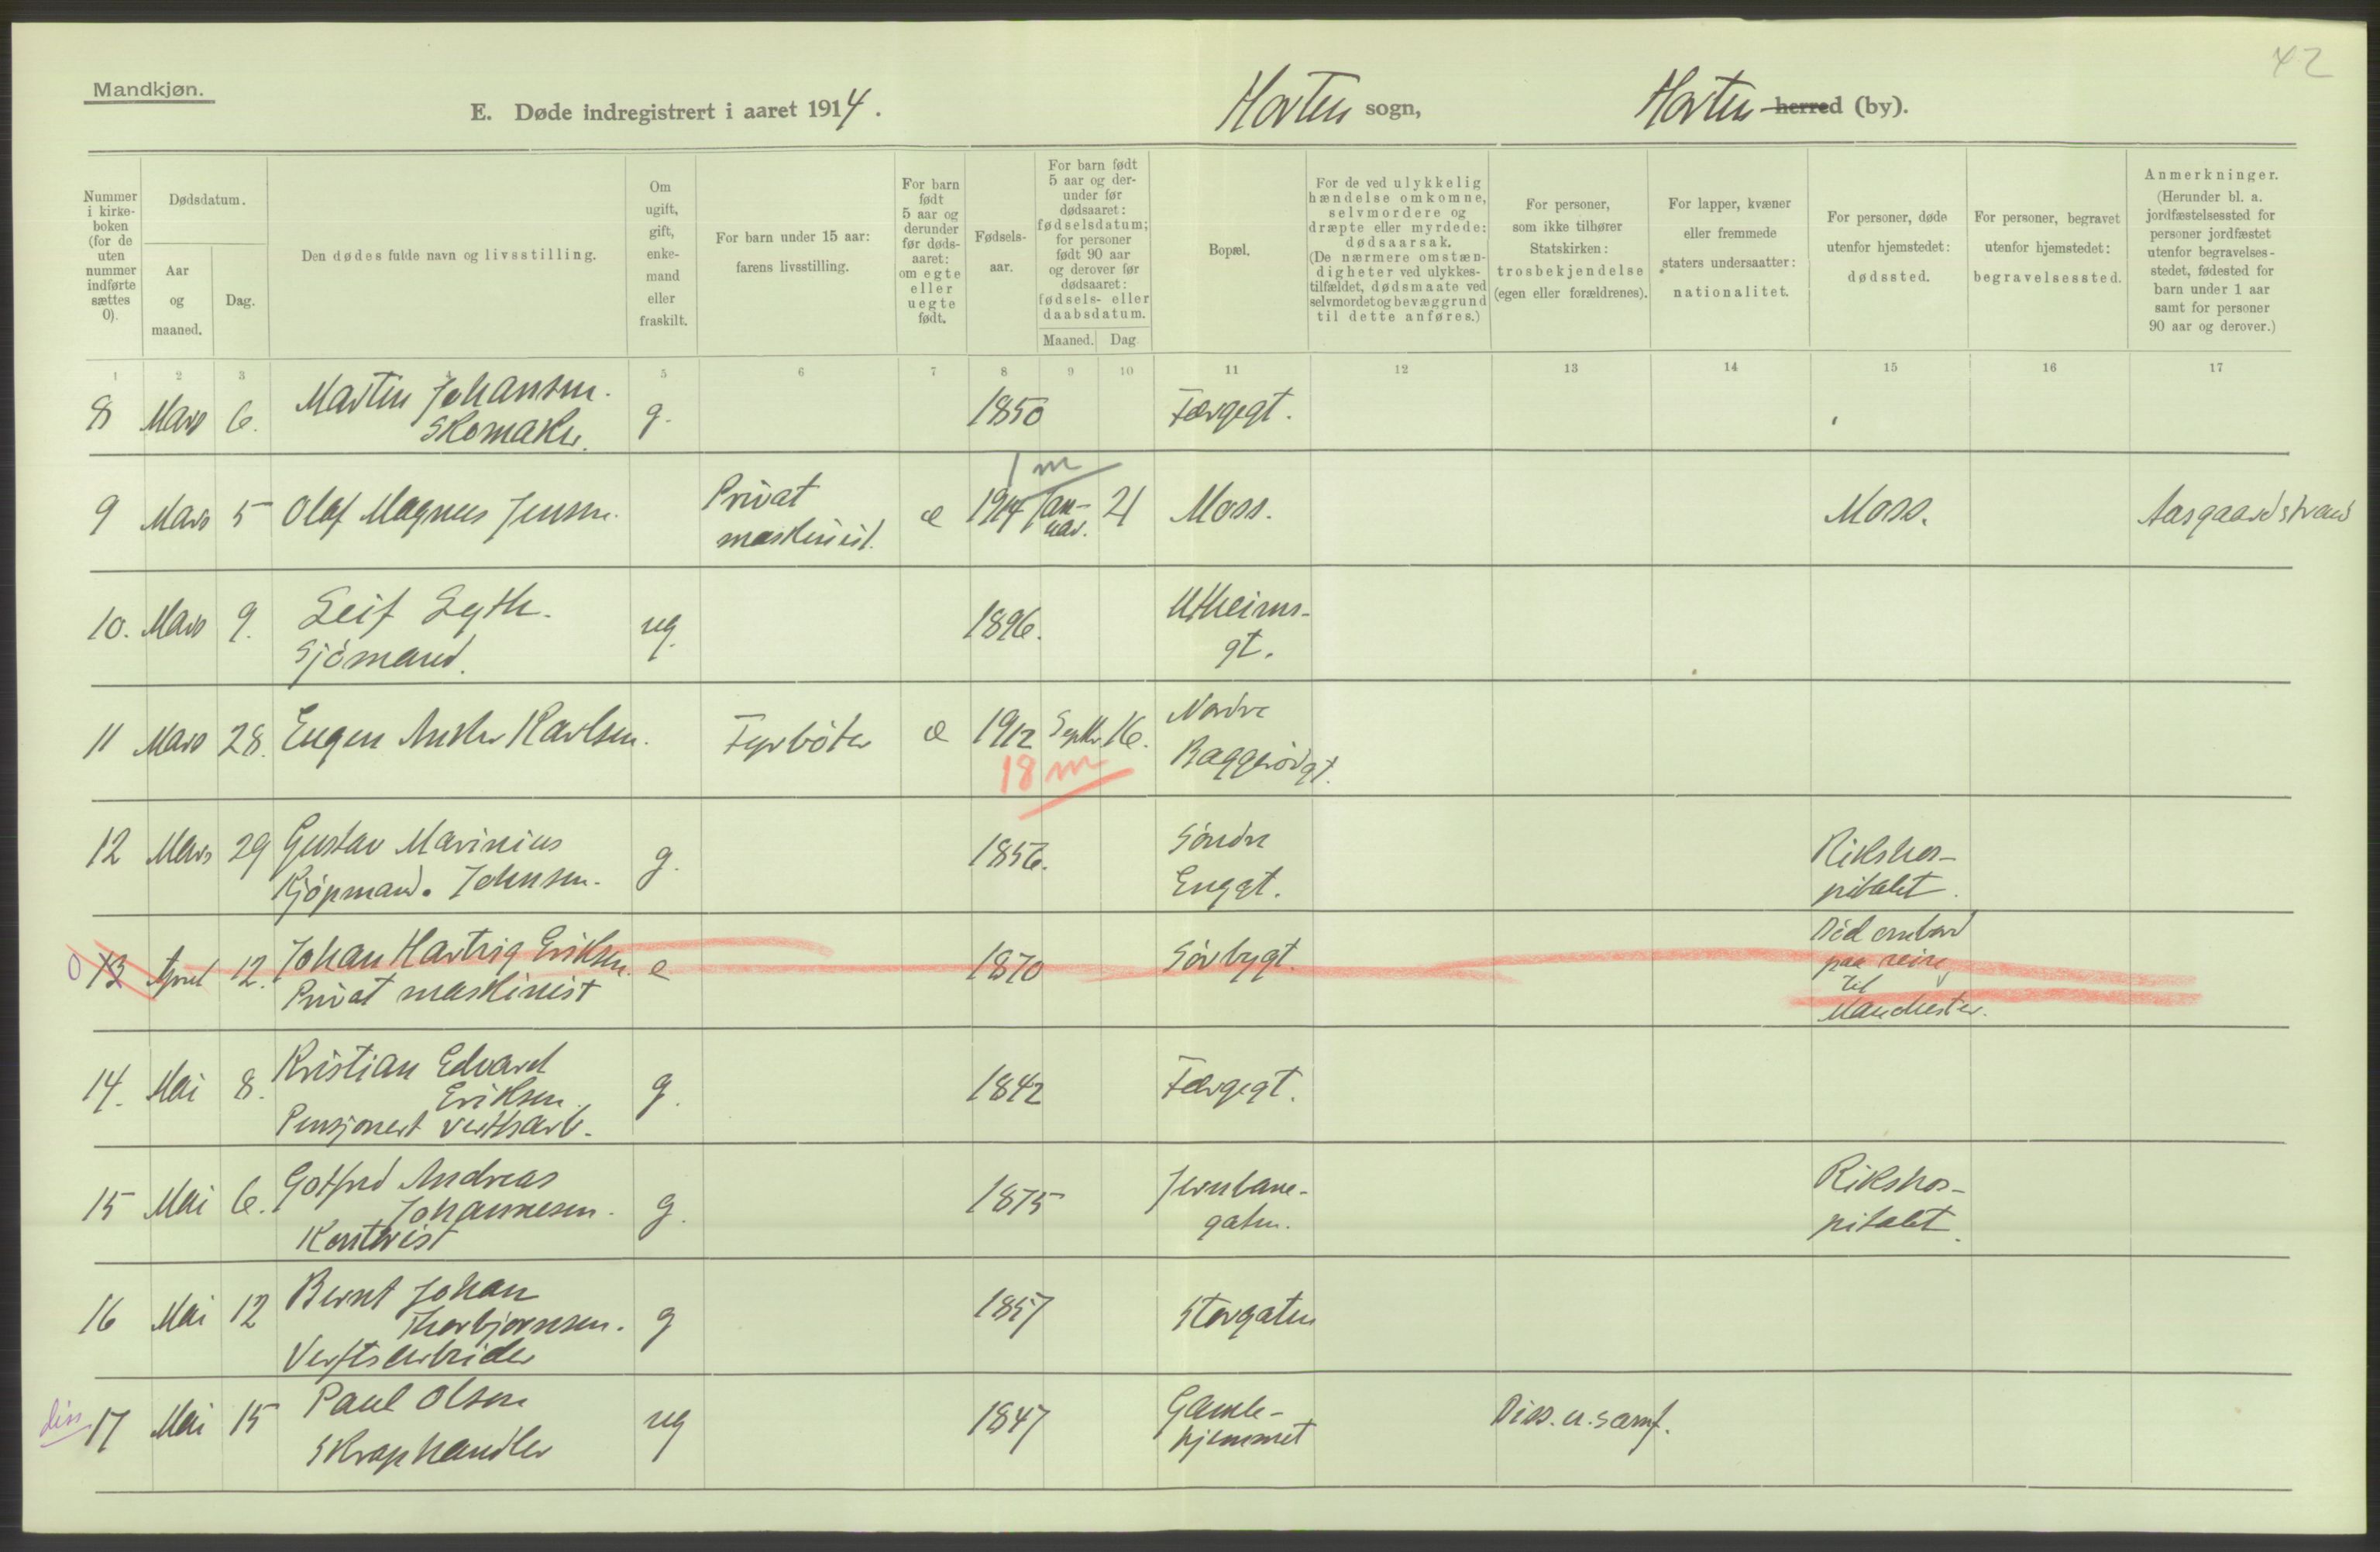 42
Mandkjøn.
E. Døde indregistrert i aaret 1914.
Horten sogn,
Horten herred (by).
Nummer i kirke-boken (for de uten nummer indførte sættes 0).
Dødsdatum.
Aar og maaned.
Dag.
Den dødes fulde navn og livsstilling.
Om ugift, gift, enke-mand eller fraskilt.
For barn under 15 aar: farens livsstilling.
For barn født 5 aar og derunder før døds-aaret: om egte eller uegte født.
Fødsels-aar.
For barn født 5 aar og der-under før dødsaaret: fødselsdatum; for personer født 90 aar og derover før dødsaaret: fødsels- eller daabsdatum.
Maaned.
Dag
Bopæl.
For de ved ulykkelig hændelse omkomne, selvmordere og dræpte eller myrdede: dødsaarsak. (De nærmere omstæn-digheter ved ulykkes-tilfældet, dødsmaate ved selvmordet og bevæggrund til dette anføres.)
For personer, som ikke tilhører Statskirken: trosbekjendelse (egen eller forældrenes).
For lapper, kvæner eller fremmede staters undersaatter: nationalitet.
For personer, døde utenfor hjemstedet: dødssted.
For personer, begravet utenfor hjemstedet: begravelsessted.
Anmerkninger. (Herunder bl. a. jordfæstelsessted for personer jordfæstet utenfor begravelses-stedet, fødested for barn under 1 aar samt for personer 90 aar og derover.)
1 2 3 4 5 6 7 8 9 10 11 12 13 14 15 16 17
8 Mars 6. Martin Johansen. g. 1850 Færgegt.
Skomaker.
1 m
9 Mars 5 Olaf Magnus Jensen. Privat maskinist. e 1914 Januar. 21 Moss. Moss. Aasgaardstrand
10. Mars 9. Leif Lyth. ug. 1896. Utheims-
Sjömand. gt.
11 Mars 28. Eugen Anker Karlsen. Fyrböter e 1912 Septbr. 16. Nordre
18 m Baggerödgt.
12 Mars 29 Gustav Marinius g. 1856. Söndre Rikshos-
Kjöpmand. Johnsen. Enggt. pitalet.
0 13 April 12. Johan Hartvig Eriksen. e 1870 Sörbygt. Död ombord
Privat maskinist paa reise
til
Manchester.
14. Mai 8. Kristian Edvard g. 1842 Færgegt.
Eriksen.
Pensjonert verftsarb.
15 Mai 6. Gotfred Andreas g. 1875 Jernbane- Rikshos-
Johannesen. gaten. pitalet.
Kontorist
16 Mai 12 Bernt Johan g 1857 Storgaten
Thorbjørnsen.
Verftsarbeider
diss 17 Mai 15 Paul Olsen ug 1847 Gamle- Diss. u. samf.
Skraphandler hjemmet